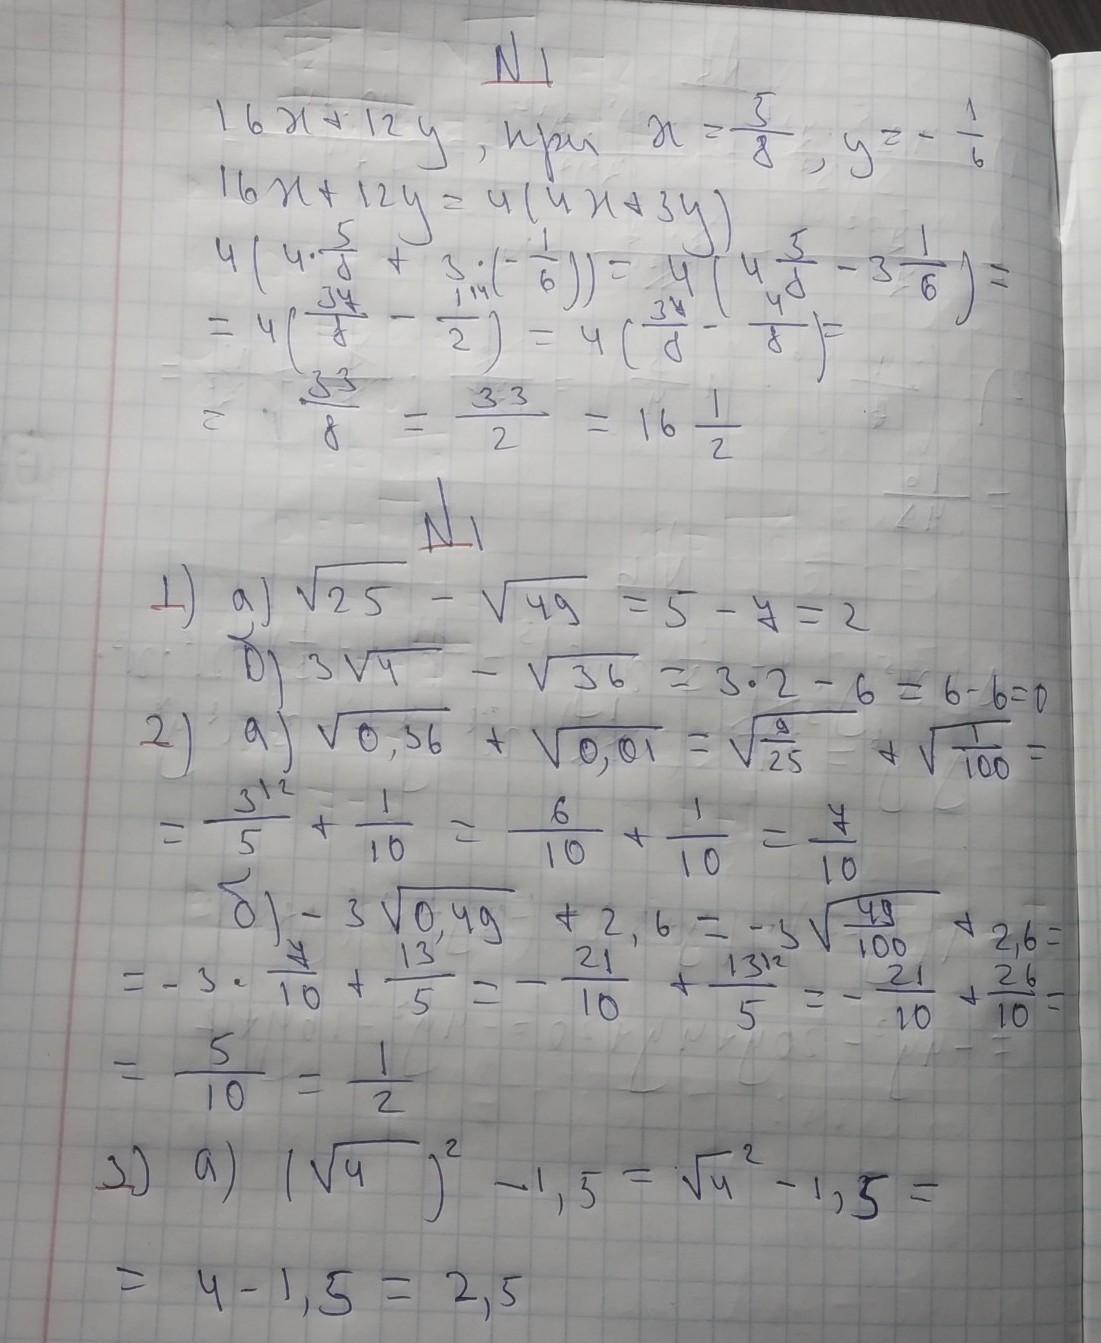 N1
16x + 12y, при x = 5/8, y = - 1/6
16x + 12y = 4(4x + 3y)
4(4·5/8 + 3·(-1/6)) = 4(4 5/8 - 3 1/6) =
= 4(37/8 - 1\4/2) = 4(37/8 - 4/8) =
= 33/8 = 33/2 = 16 1/2
N1
1) а) √25 - √49 = 5 - 7 = 2
б) 3√4 - √36 = 3·2 - 6 = 6 - 6 = 0
2) а) √0,36 + √0,01 = √9/25 + √1/100 =
= 3\2/5 + 1/10 = 6/10 + 1/10 = 7/10
б) - 3√0,49 + 2,6 = -3√49/100 + 2,6 =
= - 3·7/10 + 13/5 = - 21/10 + 13\2/5 = - 21/10 + 26/10 =
= 5/10 = 1/2
3) а) (√4)² - 1,5 = √4² - 1,5 =
= 4 - 1,5 = 2,5